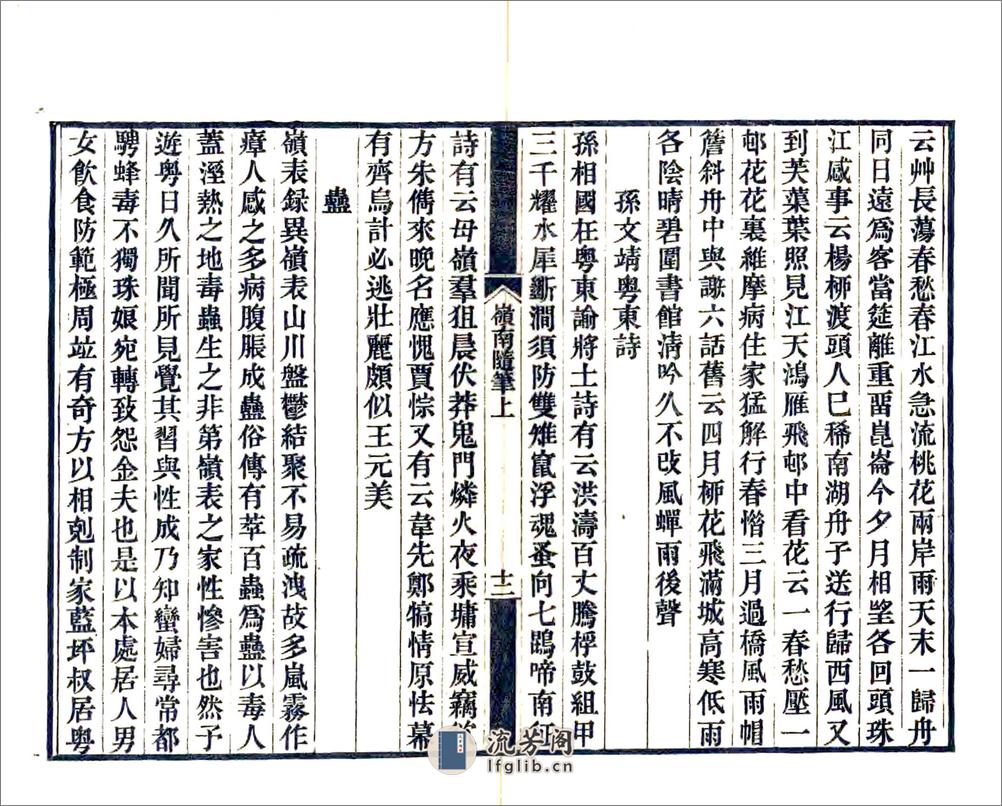 云艸長蕩春愁春江水急流桃花兩岸雨天末一歸舟
同日遠爲客當筵離重畱崑崙今夕月相朢各回頭珠
江感事云楊桺渡頭人巳稀南湖舟子送行歸西風又
到芙蕖葉照見江天鴻雁飛邨中看花云一春愁壓一
邨花花裏維摩病住家猛解行春惜三月過橋風雨帽
簷斜舟中與謝六話舊云四月桺花飛滿城高寒低雨
各陰晴碧圍書館淸吟久不改風蟬雨後聲
孫文靖粵東詩
孫相國在粵東諭將士詩有云洪濤百丈騰桴鼓組甲
三千耀水犀斷澗須防雙雉竄浮魂蚤向七鵾啼南征
詩有云母嶺羣狙晨伏莽鬼門燐火夜乘墉宣威竊
方朱儁來晚名應愧賈悰又有云韋先鄭犒情原怯幕
有齊烏計必逃壯麗頗似王元美
蠱
嶺表録異嶺表山川盤鬱結聚不易疏洩故多嵐霧作
瘴人感之多病腹脹成蠱俗傳有萃百蟲爲蠱以毒人
蓋溼熱之地毒蟲生之非第嶺表之家性慘害也然予
遊粵日久所聞所見覺其習與性成乃知蠻婦尋常都
騁蜂毒不獨珠娘宛轉致怨金夫也是以本處居人男
女飲食防範極周竝有奇方以相剋制家藍坪叔居粵
嶺南隨筆上
十二
流芳阁
lfglib.cn